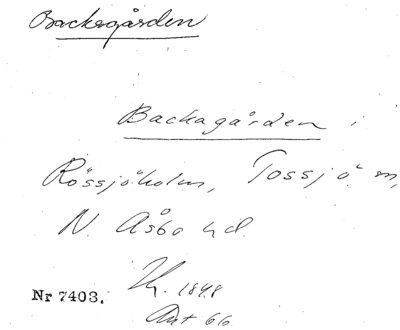 Backagården
Backagården i
Rössjöholm, Tossjö sn,
N. Åsbo hd.
Nr 7403.
1848
Ant 66